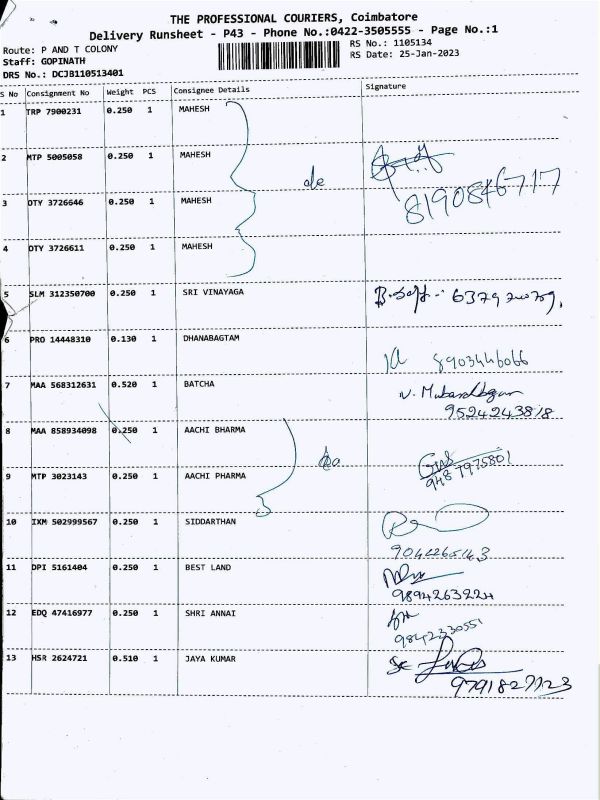 THE PROFESSIONAL COURIERS, Coimbatore
Delivery Runsheet - P43 - Phone No.:0422-3505555 - Page No.:1
Route: P AND T COLONY
Staff: GOPINATH
DRS No.: DCJB110513401
RS No.: 1105134
RS Date: 25-Jan-2023
S No Consignment No Weight PCS Consignee Details Signature
1 TRP 7900231 0.250 1 MAHESH
2 MTP 5005058 0.250 1 MAHESH
8190846717
3 DTY 3726646 0.250 1 MAHESH
4 DTY 3726611 0.250 1 MAHESH
5 SLM 312350700 0.250 1 SRI VINAYAGA
6 PRO 14448310 0.130 1 DHANABAGTAM
8903446066
7 MAA 568312631 0.520 1 BATCHA
9524243818
8 MAA 858934098 0.250 1 AACHI BHARMA
9 MTP 3023143 0.250 1 AACHI PHARMA
9487975801
10 IXM 502999567 0.250 1 SIDDARTHAN
11 DPI 5161404 0.250 1 BEST LAND
9894263224
12 EDQ 47416977 0.250 1 SHRI ANNAI
9842330551
13 HSR 2624721 0.510 1 JAYA KUMAR